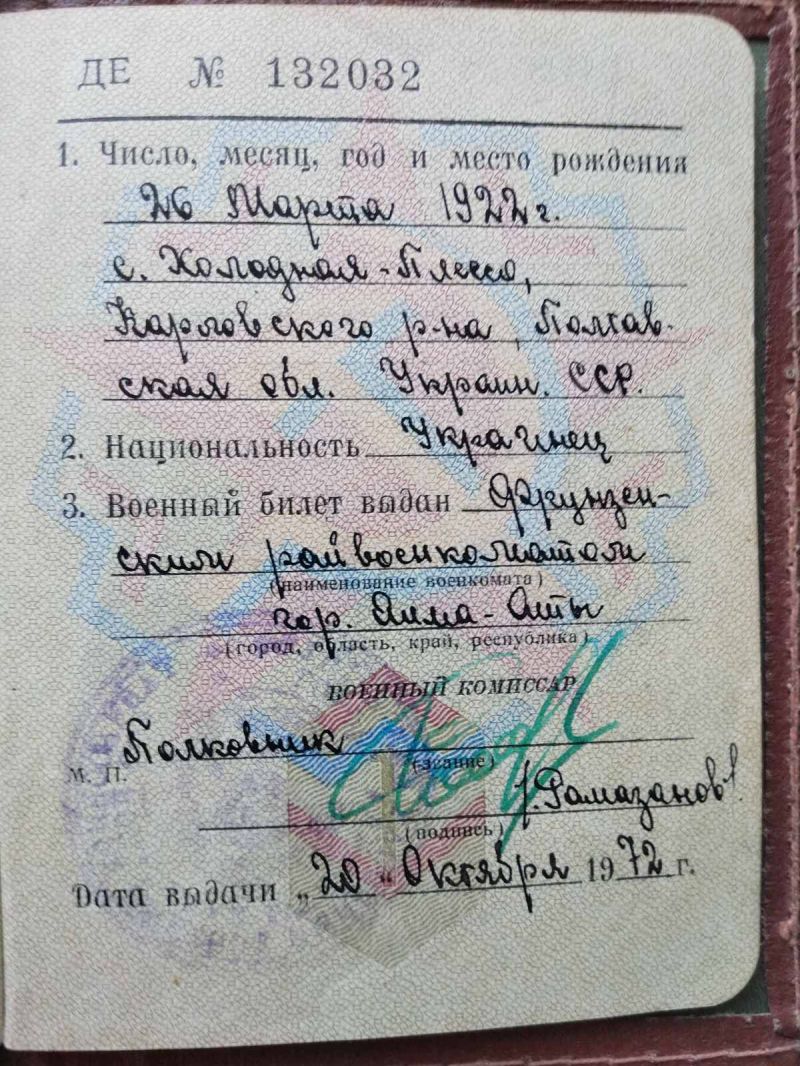 ДЕ № 132032
1. Число, месяц, год и место рождения
26 Марта 1922 г.
с. Холодная-Плесо,
Карловского р-на, Полтав-
ская обл. Украин. ССР.
2. Национальность Украинец
3. Военный билет выдан Фрунзен-
ским райвоенкоматом
(наименование военкомата)
гор. Алма-Аты
(город, область, край, республика)
ВОЕННЫЙ КОМИССАР
Полковник
М. П. (звание)
(Рамазанов)
(подпись)
Дата выдачи „20“ Октября 1972 г.